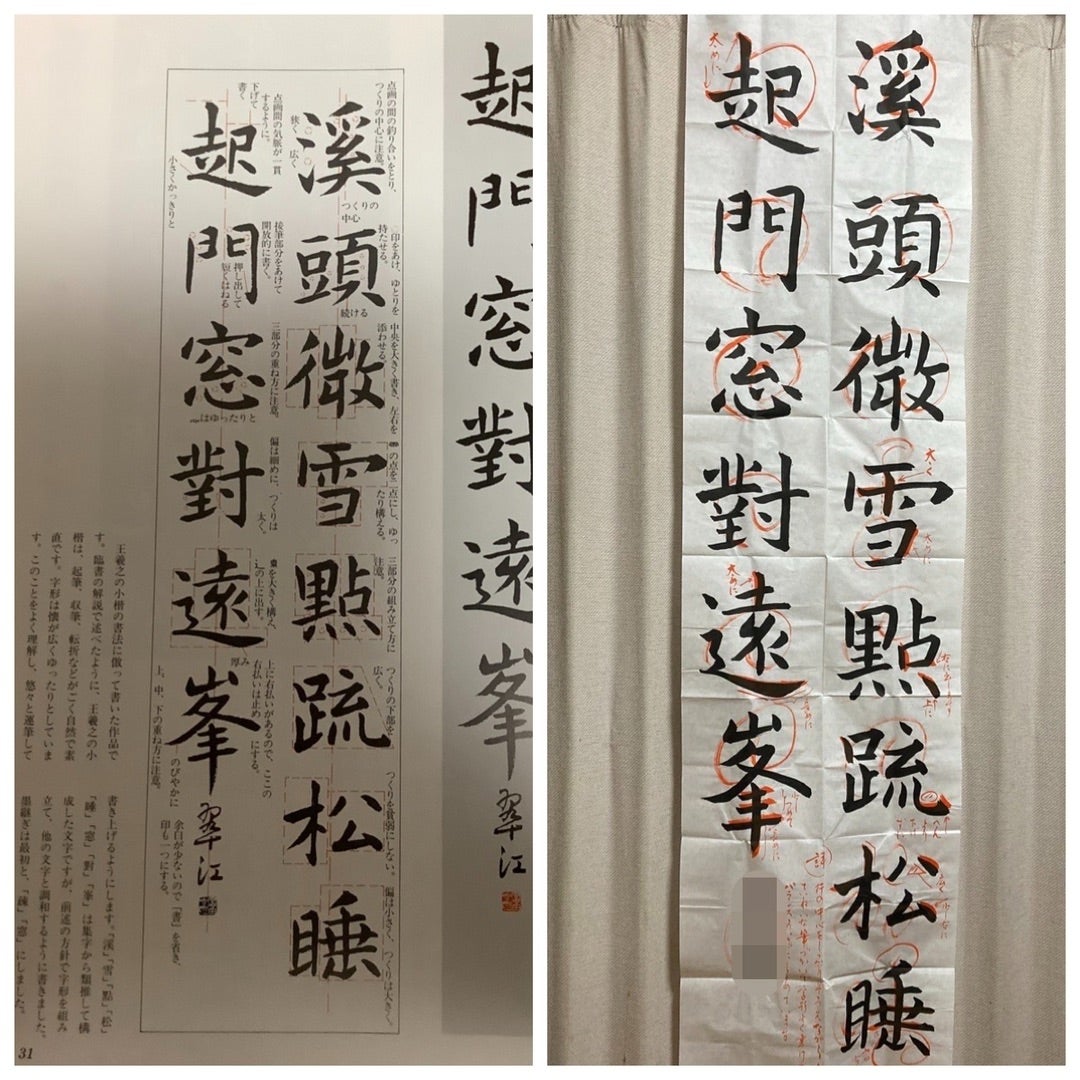 溪頭微雪點疏松睡
起門窓對遠峯
翠江
点画の間の釣り合いをとり、
つくりの中心に注意。
狭く 広く
点画間の気脈が一貫
するように。
下げて
書く
小さくかっきりと
つくりの
中心
○印をあけ、ゆとりを
持たせる。
接筆部分をあけて
開放的に書く。
押し出して
短くはねる
続ける
中央を大きく書き、左右を
添わせる。
三部分の重ね方に注意。
はゆったりと
の点を二点にし、ゆっ
たり構える。
偏は細めに、つくりは
太く。
三部分の組み立て方に
注意。
を大きく構え、
辶の上に出す。
つくりの下部を
広く。
厚み
上に右払いがあるので、ここの
右払いは止め にする。
上、中、下の重ね方に注意。
のびやかに
つくりを貧弱にしない。
偏は小さく、つくりは大きく。
余白が少ないので「書」を省き、
印も一つにする。
王羲之の小楷の書法に倣って書いた作品で
す。臨書の解説で述べたように、王羲之の小
楷は、起筆、収筆、転折などがごく自然で素
直です。字形は懐が広くゆったりとしていま
す。このことをよく理解し、悠々と運筆して
書き上げるようにします。「溪」「雪」「點」「松」
「睡」「窓」「對」「峯」は集字から類推して構
成した文字ですが、前述の方針で字形を組み
立て、他の文字と調和するように書きました。
墨継ぎは最初と、「疎」「窓」にしました。
31
起門窓對遠峯
翠江
溪頭微雪點疏松睡
起門窓對遠峯
太めに
太く
太めに
太めに